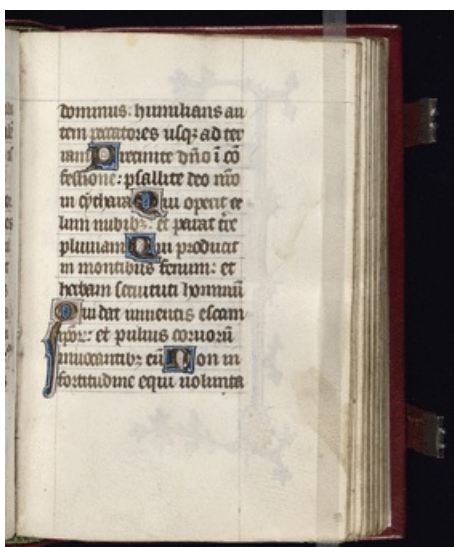 dominus: humilians au
tem peccatores usq; ad ter
ram Precinite dño i cõ
fessione: psallite deo nr̃o
in cythara Qui operit ce
lum nubib; et parat tr̃e
pluuiam Qui producit
in montibus fenum: et
herbam seruituti hominũ
Qui dat iumentis escam
ipor̃: et pullis coruorũ
inuocantib; eũ Non in
fortitudine equi uolunta